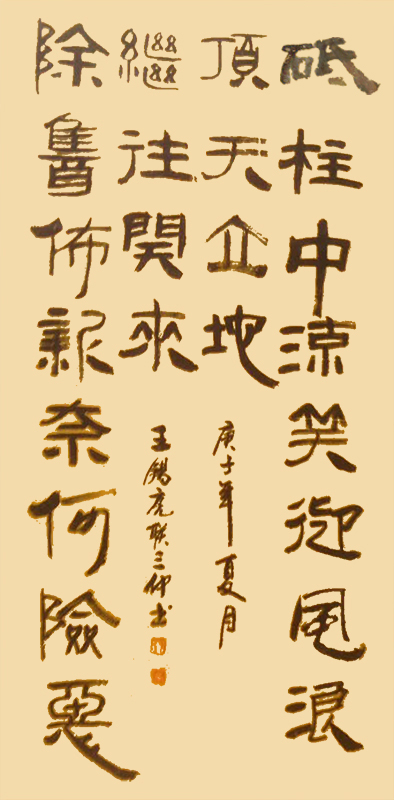 砥柱中流笑迎風浪
頂天立地
除舊佈新奈何險惡
繼往開來
庚子年夏月
王錫虎联三仲书